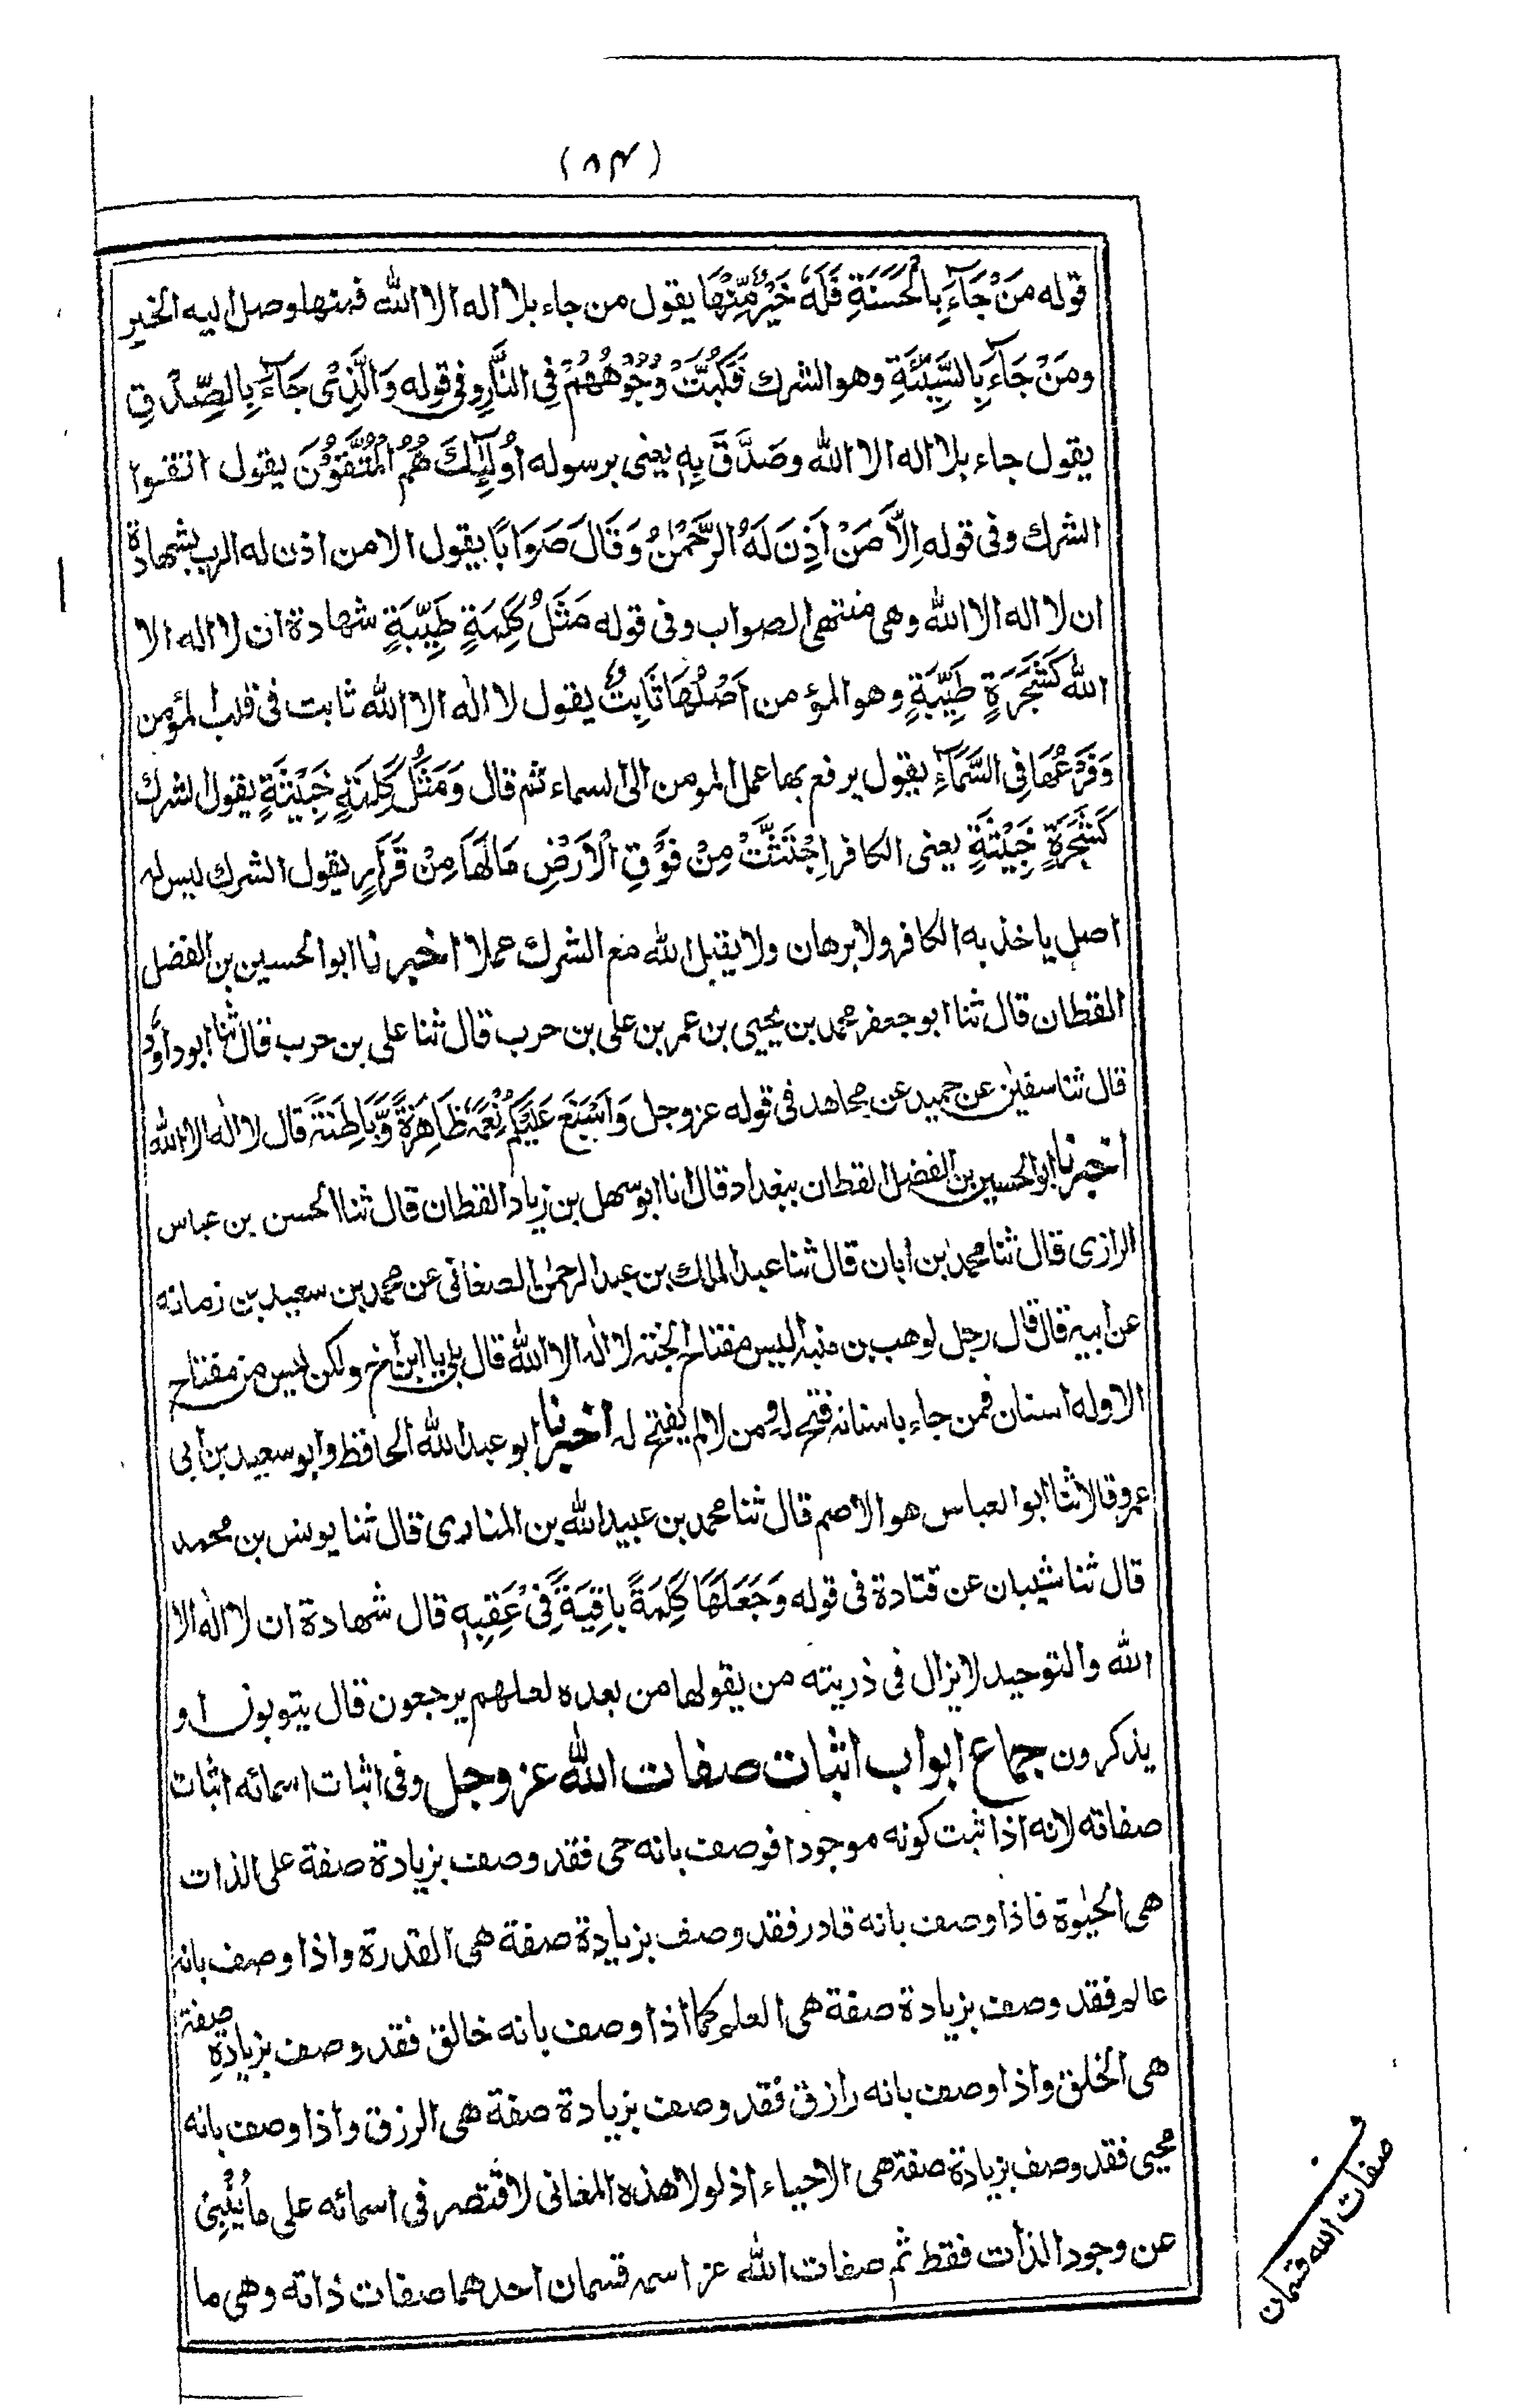 (٨٤)
قوله مَنْ جَآءَ بِالْحَسَنَةِ فَلَهٗ خَيْرٌ مِّنْهَا يقول من جاء بلا اله الا الله فمنها وصل اليه الخير
ومَنْ جَآءَ بِالسَّيِّئَةِ وهو الشرك فَكُبَّتْ وُجُوْهُهُمْ فِى النَّارِ وفى قوله وَالَّذِىْ جَآءَ بِالصِّدْقِ
يقول جاء بلا اله الا الله وصَدَّقَ بِهٖ يعنى برسوله اُولٰٓئِكَ هُمُ الْمُتَّقُوْنَ يقول اتقوا
الشرك وفى قوله اِلَّا مَنْ اَذِنَ لَهُ الرَّحْمٰنُ وَقَالَ صَوَابًا يقول الا من اذن له الرب بشهادة
ان لا اله الا الله وهى منتهى الصواب وفى قوله مَثَلُ كَلِمَةٍ طَيِّبَةٍ شهادة ان لا اله الا
الله كَشَجَرَةٍ طَيِّبَةٍ وهو المؤمن اَصْلُهَا ثَابِتٌ يقول لا اله الا الله ثابت فى قلب المؤمن
وَفَرْعُهَا فِى السَّمَآءِ يقول يرفع بها عمل المومن الى السماء ثم قال وَمَثَلُ كَلِمَةٍ خَبِيْثَةٍ يقول الشرك
كَشَجَرَةٍ خَبِيْثَةٍ يعنى الكافر اجْتُثَّتْ مِنْ فَوْقِ الْاَرْضِ مَا لَهَا مِنْ قَرَارٍ يقول الشرك ليس له
اصل ياخذ به الكافر ولا برهان ولا يقبل الله مع الشرك عملا اخبرنا ابو الحسين بن الفضل
القطان قال ثنا ابو جعفر محمد بن يحيى بن عمر بن على بن حرب قال ثنا على بن حرب قال ثنا ابو داود
قال ثنا سفيٰن عن حميد عن مجاهد فى قوله عزوجل وَاَسْبَغَ عَلَيْكُمْ نِعَمَهٗ ظَاهِرَةً وَّبَاطِنَةً قال لا اله الا الله
اخبرنا ابو الحسين بن الفضل القطان ببغداد قال انا ابو سهل بن زياد القطان قال ثنا الحسن بن عباس
الرازى قال ثنا محمد بن ابان قال ثنا عبد الملك بن عبد الرحمٰن الصغانى عن محمد بن سعيد بن زمانه
عن ابيه قال قال رجل لوهب بن منبه اليس مفتاح الجنة لا اله الا الله قال بلى يا ابن اخ ولكن ليس من مفتاح
الا وله اسنان فمن جاء باسنانه فتح له ومن لا لم يفتح له اخبرنا ابو عبد الله الحافظ وابو سعيد بن ابى
عمرو قالا ثنا ابو العباس هو الاصم قال ثنا محمد بن عبيد الله بن المنادى قال ثنا يونس بن محمد
قال ثنا شيبان عن قتادة فى قوله وَجَعَلَهَا كَلِمَةً بَاقِيَةً فِىْ عَقِبِهٖ قال شهادة ان لا اله الا
الله والتوحيد لا يزال فى ذريته من يقولها من بعده لعلهم يرجعون قال يتوبون او
يذكرون جماع ابواب اثبات صفات الله عزوجل وفى اثبات اسمائه اثبات
صفاته لانه اذا ثبت كونه موجودا فوصف بانه حى فقد وصف بزيادة صفة على الذات
هى الحيٰوة فاذا وصف بانه قادر فقد وصف بزيادة صفة هى القدرة واذا وصف بانه
عالم فقد وصف بزيادة صفة هى العلم كما اذا وصف بانه خالق فقد وصف بزيادة صفة
هى الخلق واذا وصف بانه رازق فقد وصف بزيادة صفة هى الرزق واذا وصف بانه
محيى فقد وصف بزيادة صفة هى الاحياء اذ لولا هذه المعانى لاقتصر فى اسمائه على ما يُنْبِئُ
عن وجود الذات فقط ثم صفات الله عز اسمه قسمان احدهما صفات ذاته وهى ما
صفات الله قسمان